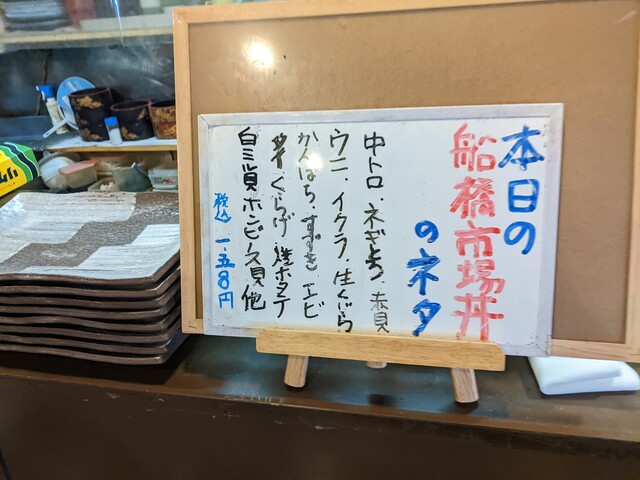 本日の
船橋市場丼
のネタ
中トロ、ネギトロ、赤貝
ウニ、イクラ、生くじら
かんぱち、すずき、エビ
くらげ 活ホタテ
白ミル貝 ホンビノス貝 他
税込 一、五八〇円